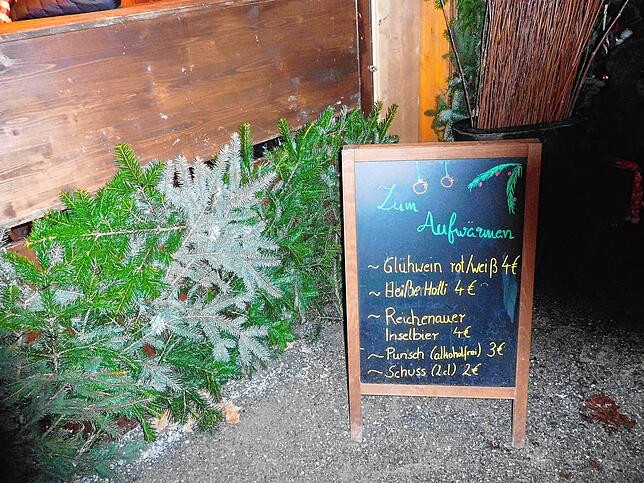 Zum
Aufwärmen
~ Glühwein rot/weiß 4€
~ Heiße Holli 4€
~ Reichenauer
Inselbier 4€
~ Punsch (alkoholfrei) 3€
~ Schuss (2cl) 2€